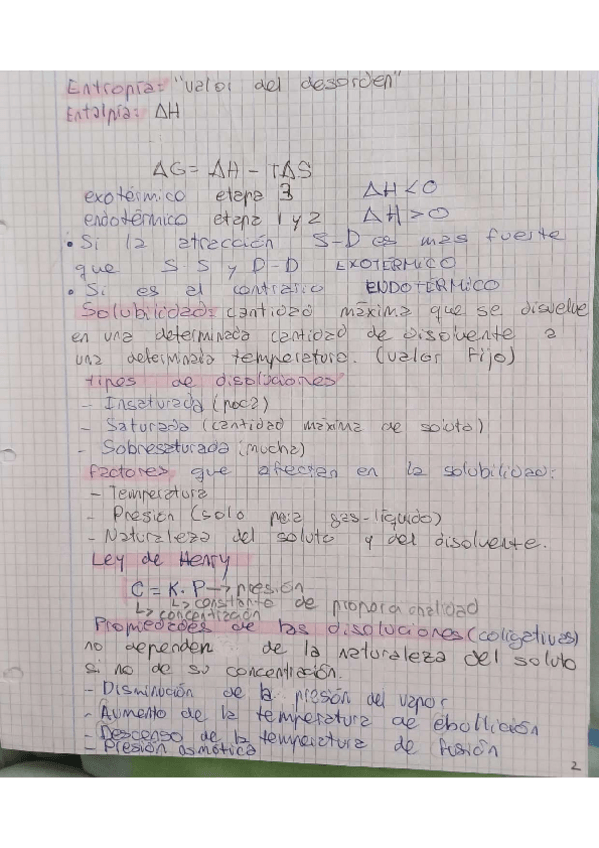 Entropía: "valor del desorden"
Entalpía: ΔH
ΔG = ΔH - TΔS
exotérmico etapa 3 ΔH < 0
endotérmico etapa 1 y 2 ΔH > 0
• Si la atracción S-D es mas fuerte
que S-S y D-D EXOTÉRMICO
• Si es el contrario ENDOTÉRMICO
Solubilidad: cantidad máxima que se disuelve
en una determinada cantidad de disolvente a
una determinada temperatura. (valor fijo)
tipos de disoluciones
- Insaturada (poca)
- Saturada (cantidad máxima de soluto)
- Sobresaturada (mucha)
factores que afectan en la solubilidad:
- Temperatura
- Presión (solo para gas-líquido)
- Naturaleza del soluto y del disolvente.
Ley de Henry
C = K · P → presión
↳ constante de proporcionalidad
↳ concentración
Propiedades de las disoluciones (coligativas)
no dependen de la naturaleza del soluto
si no de su concentración.
- Disminución de la presión del vapor
- Aumento de la temperatura de ebollición
- Descenso de la temperatura de fusión
- Presión osmótica
2